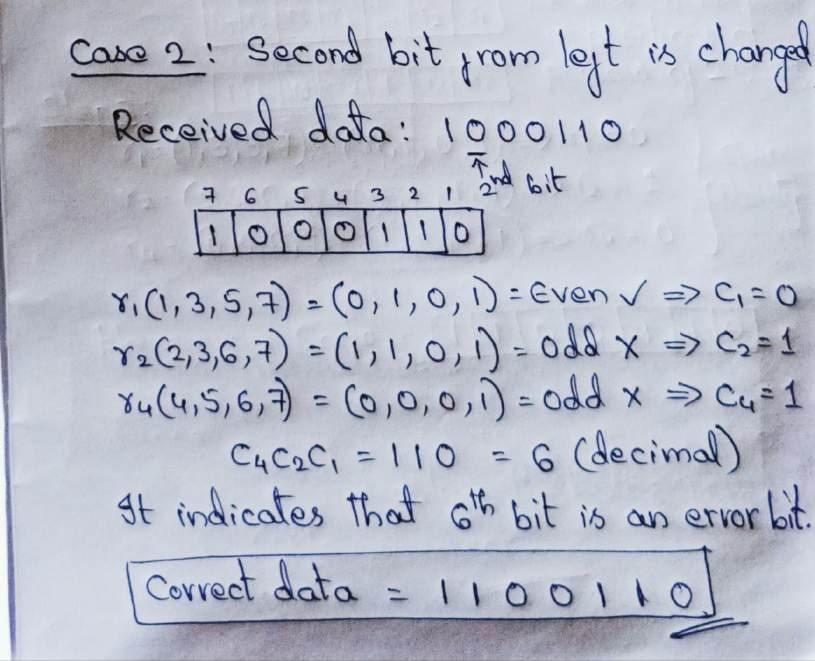 Case 2: Second bit from left is changed
Received data: 1000110
2nd bit
7 6 5 4 3 2 1
1 0 0 0 1 1 0
r₁(1,3,5,7) = (0,1,0,1) = Even ✓ ⇒ C₁=0
r₂(2,3,6,7) = (1,1,0,1) = odd x ⇒ C₂=1
r₄(4,5,6,7) = (0,0,0,1) = odd x ⇒ C₄=1
C₄C₂C₁ = 110 = 6 (decimal)
It indicates that 6th bit is an error bit.
Correct data = 1100110